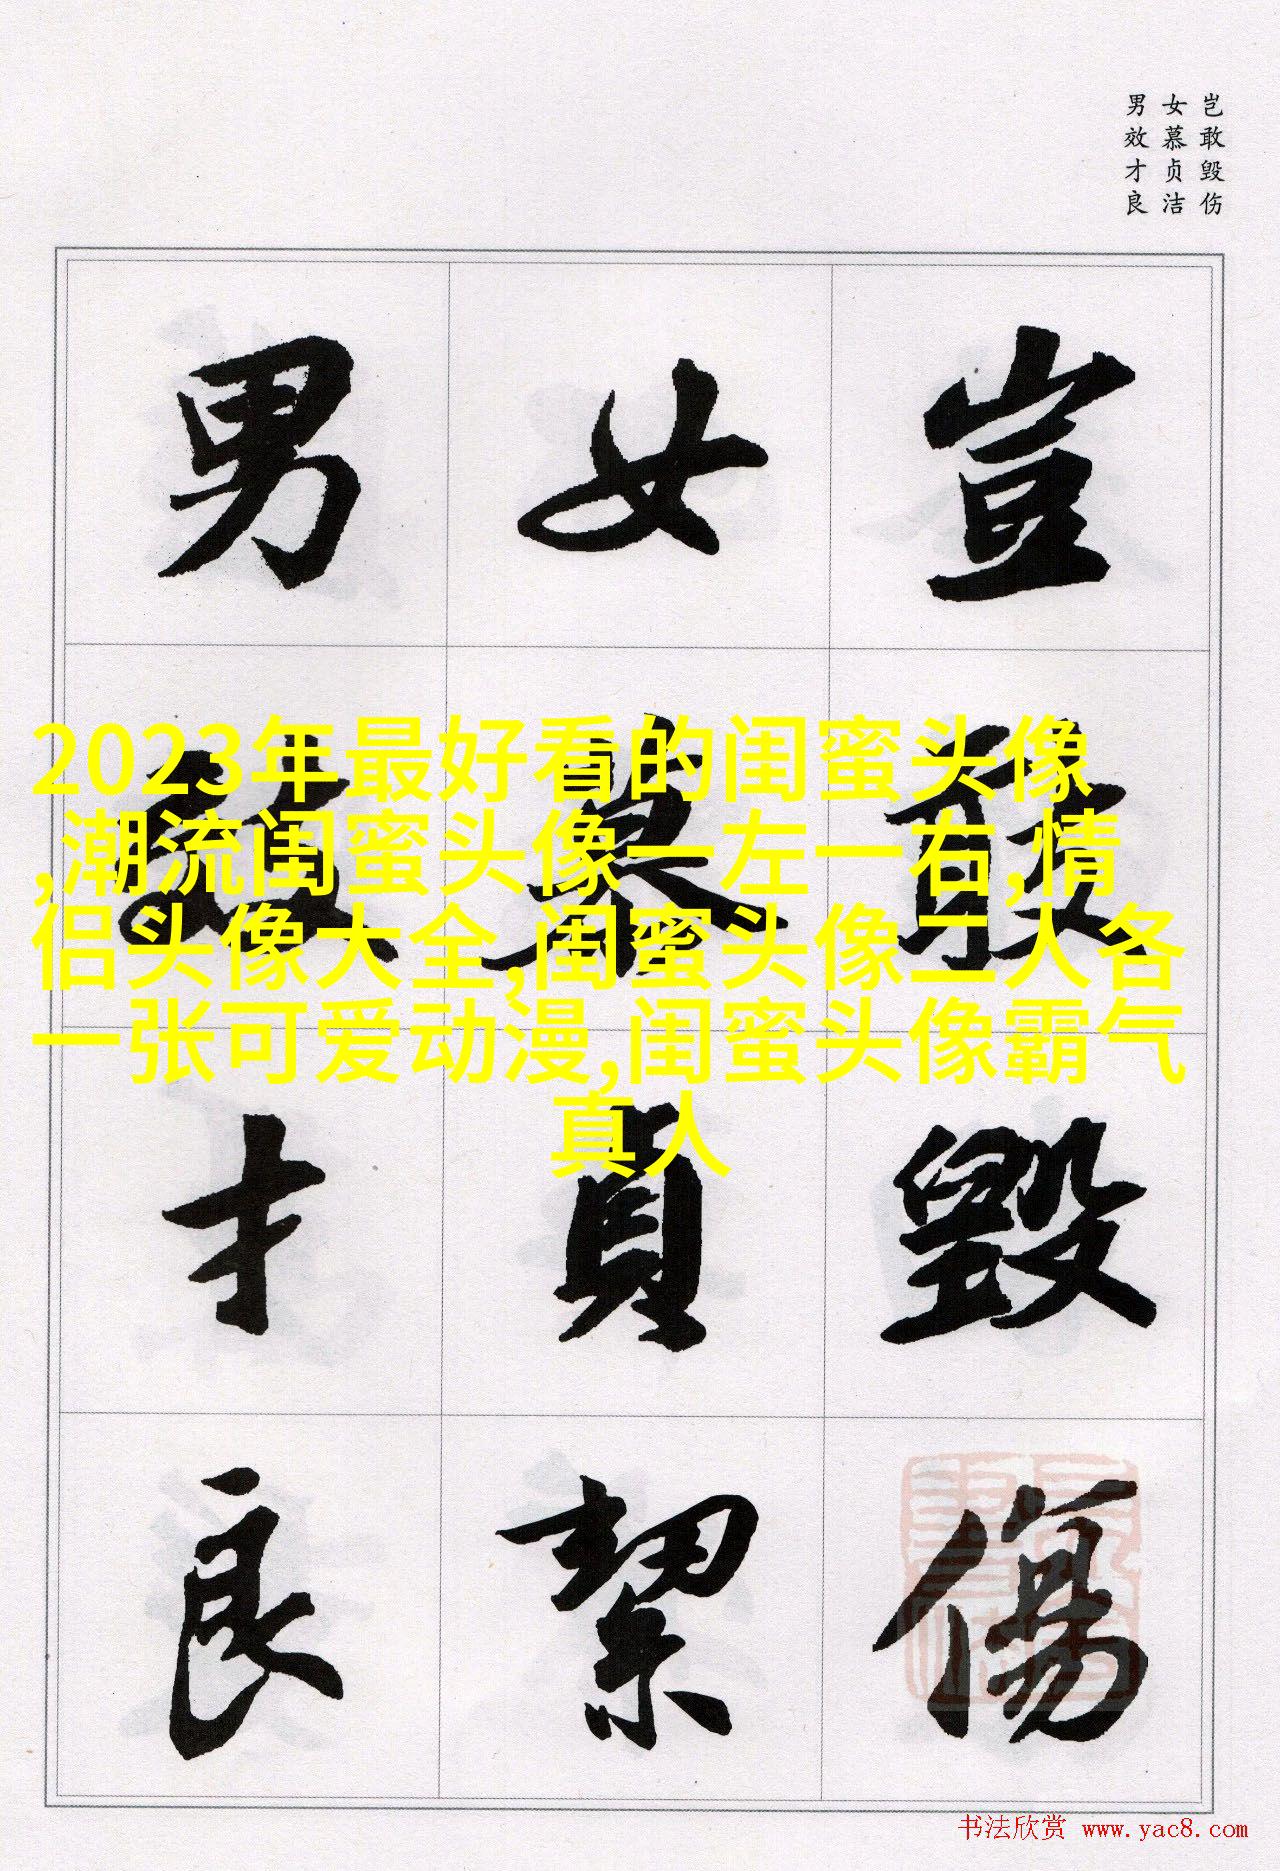 岂敢毁伤
女慕贞洁
男效才良
豈敢毀傷
女慕貞絜
男效才良
2023年最好看的闺蜜头像
,潮流闺蜜头像一左一右,情
侣头像大全,闺蜜头像二人各
一张可爱动漫,闺蜜头像霸气
真人
书法欣赏 www.yac8.com